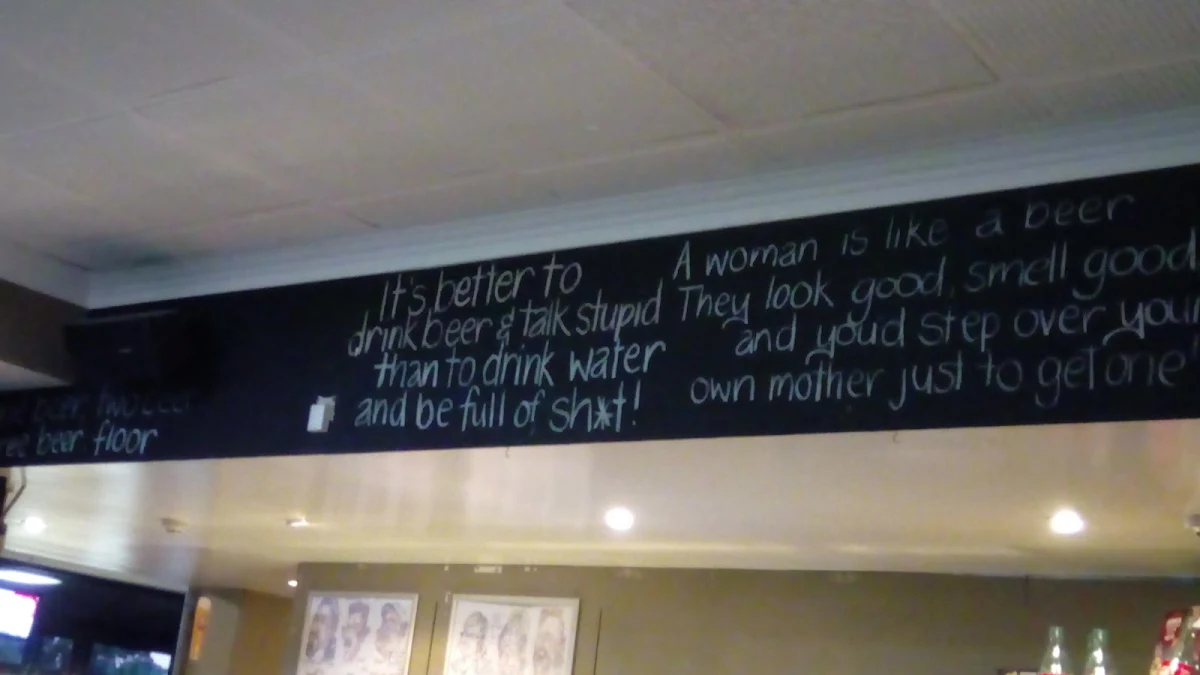 beer two beer
beer floor
It's better to
drink beer & talk stupid
than to drink water
and be full of sh*t!
A woman is like a beer
They look good, smell good
and youd step over your
own mother just to get one!